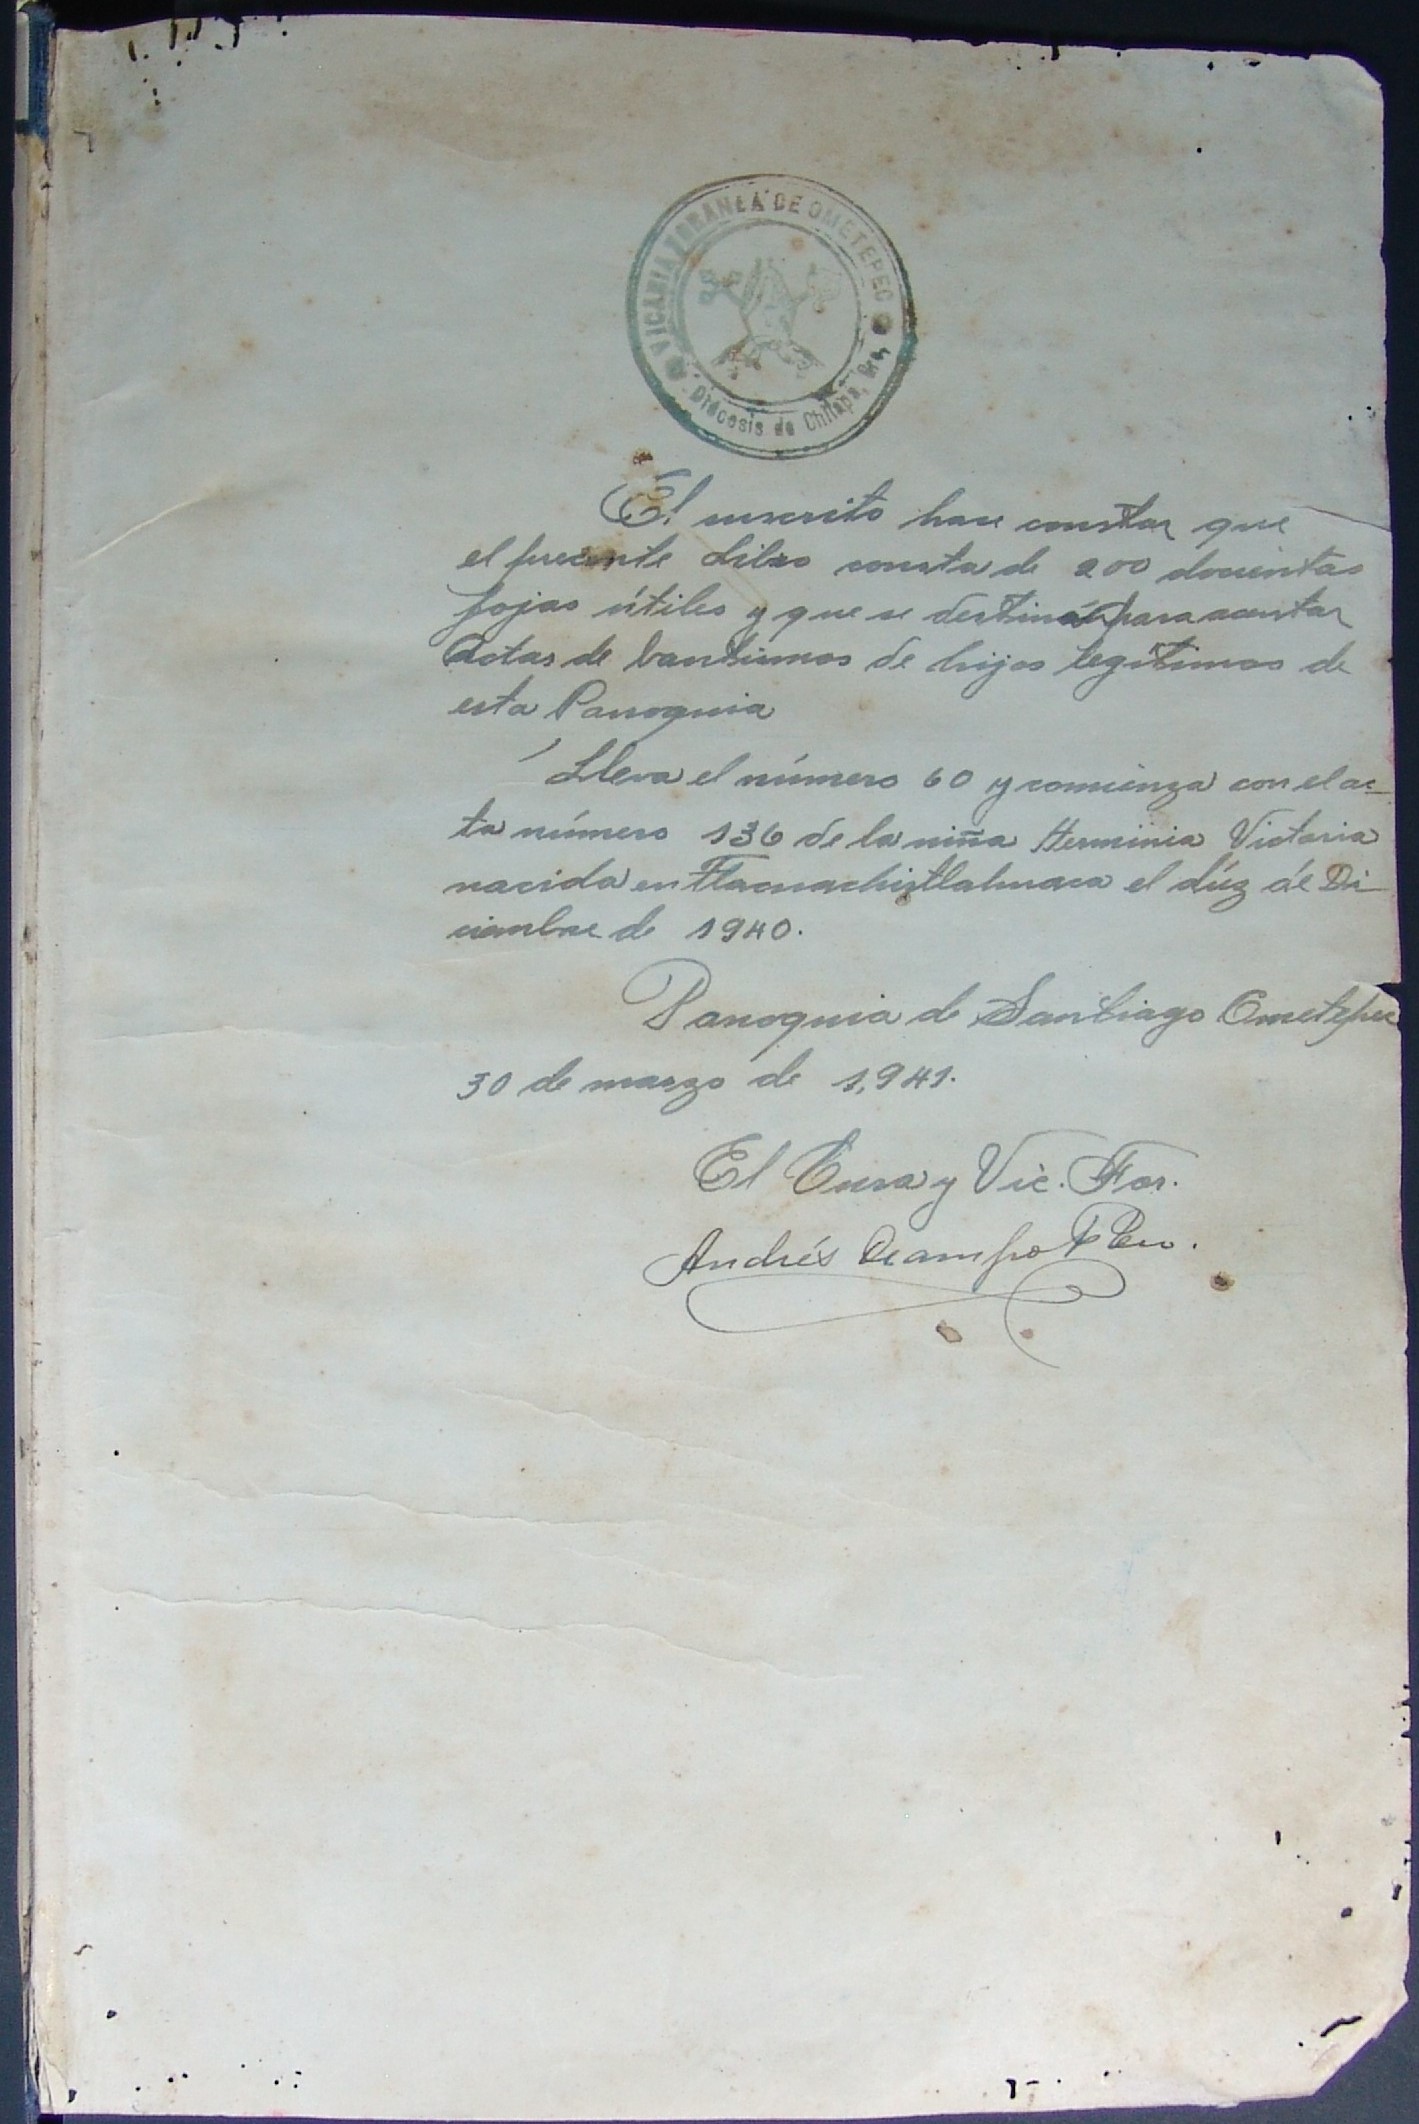 VICARIA FORANEA DE OMETEPEC
Diócesis de Chilapa, Gro,
El suscrito hace constar que
el presente Libro consta de 200 docientas
fojas útiles y que se destina para acentar
Actas de bautismos de hijos legítimos de
esta Parroquia
Lleva el número 60 y comienza con el ac-
ta número 136 de la niña Herminia Victoria
nacida en Tlacuachistlahuaca el diéz de Di-
ciembre de 1940.
Parroquia de Santiago Ometepec
30 de marzo de 1,941.
El Cura y Vic. For.
Andrés Ocampo Pbro.